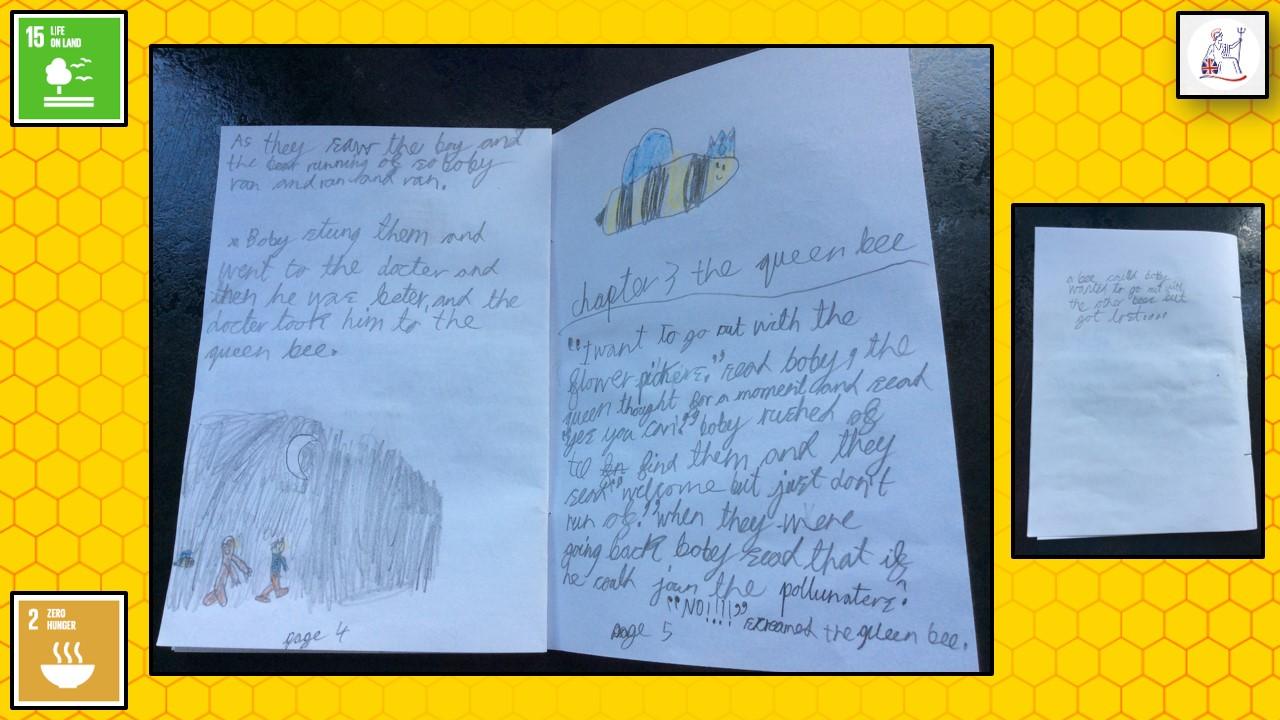 15 LIFE
ON LAND
As they saw the boy and
the bear running of so boby
ran and ran and ran.
Boby stung them and
went to the docter and
then he was beter, and the
docter took him to the
queen bee.
page 4
chapter 3 the queen bee
"I want to go out with the
flower pickers." sead boby, the
queen thought for a moment and sead
"yes you can." boby rushed of
to find them and they
sead "welcome but just don't
run of." when they were
going back boby sead that if
he coulh join the pollunaters?
"NO!!!!" screamed the queen bee.
page 5
a bee calld boby
wanted to go out with
the other bees but
got lost....
2 ZERO
HUNGER